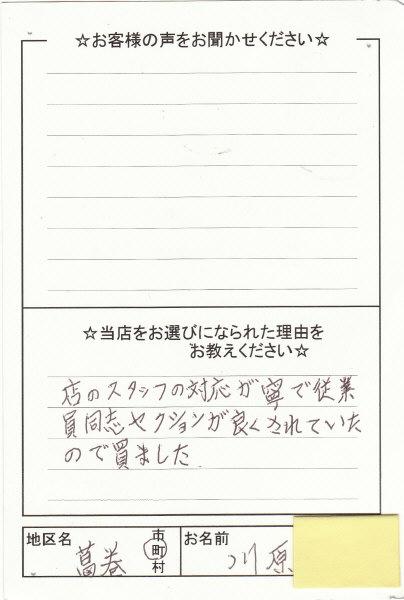 ☆お客様の声をお聞かせください☆
☆当店をお選びになられた理由を
お教えください☆
店のスタッフの対応が寧で従業
員同志セクションが良くされていた
ので買ました
地区名 葛巻 市町村 お名前 川原